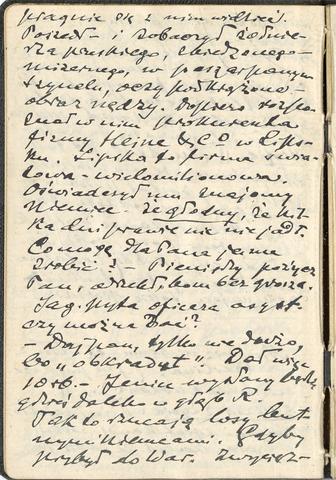 pragnie się z nim widzieć.
Poszedł i zobaczył żołnie-
rza pruskiego, zbiedzonego-
mizernego, w poszarpanym
szynelu, oczy podkrążone-
obraz nędzy. Dopiero rozpo-
znał w nim prokurenta
firmy Hejne & Co w Lips-
ku. Lipska to firma świa-
towa - wielomilionowa.
Oświadczył mu znajomy
Niemiec że głodny, że kil-
ka dni prawie nic nie jadł.
Co mogę dla Pana
zrobić? - Pieniędzy pożycz
Pan, odesłał, bom bez grosza.
Jag. pyta oficera asyst.
czy można dać?
- Daj pan, tylko nie dużo,
bo "obkradną". Dał więc
10 rb. - Jeniec wysłany będzie
gdzieś daleko w głąb R.
Tak to rzucają losy
nymi Niemcami. Gdyby
przybył do War. zwycięz-